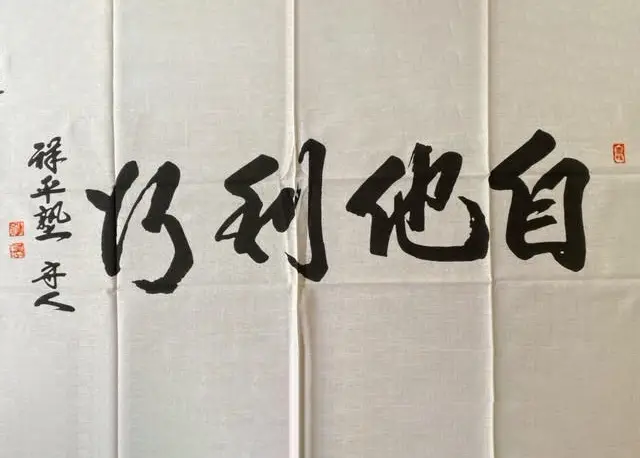 自他利行
祥平塾 守人